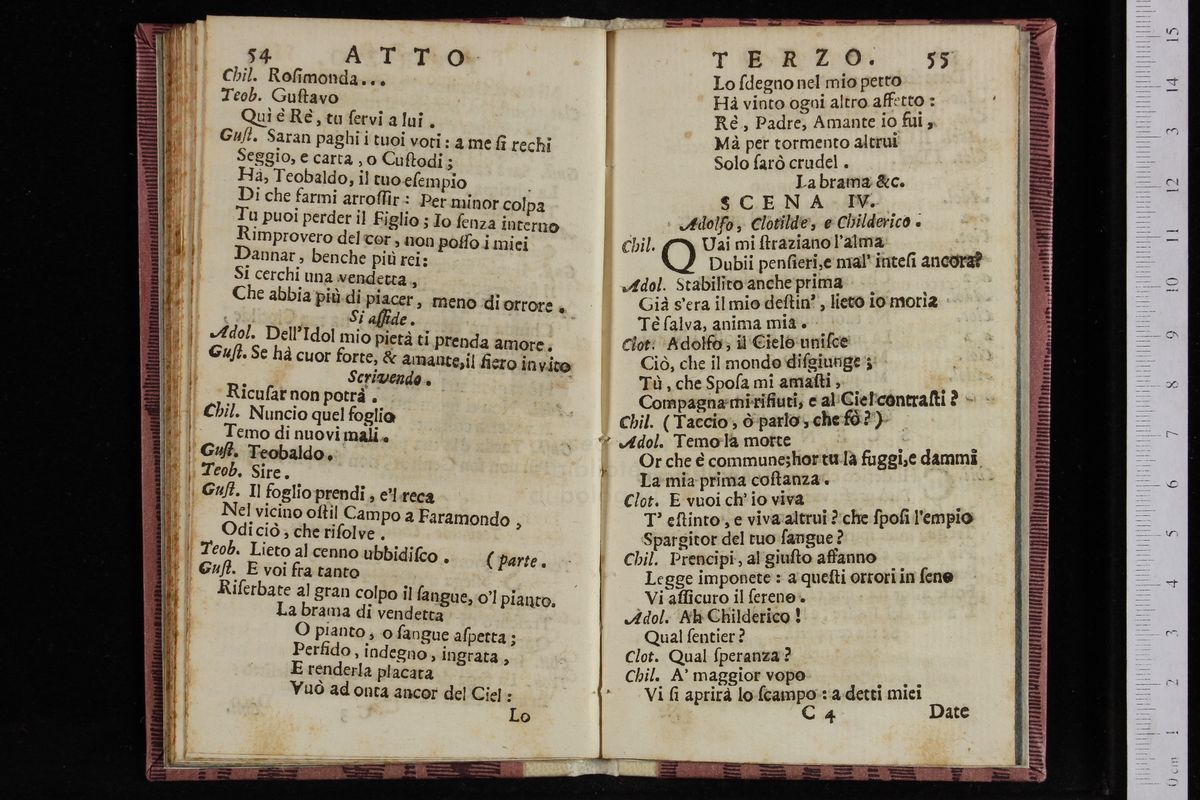 54 ATTO
Chil. Roſimonda...
Teob. Guſtavo
Qui è Rè, tu ſervi a lui.
Guſt. Saran paghi i tuoi voti: a me ſi rechi
Seggio, e carta, o Cuſtodi;
Hà, Teobaldo, il tuo eſempio
Di che farmi arroſſir: Per minor colpa
Tu puoi perder il Figlio; Io ſenza interno
Rimprovero del cor, non poſſo i miei
Dannar, benche più rei:
Si cerchi una vendetta,
Che abbia più di piacer, meno di orrore.
Si aſſide.
Adol. Dell'Idol mio pietà ti prenda amore.
Guſt. Se hà cuor forte, & amante,il fiero invito
Scrivendo.
Ricuſar non potrà.
Chil. Nuncio quel foglio
Temo di nuovi mali.
Guſt. Teobaldo.
Teob. Sire.
Guſt. Il foglio prendi, e'l reca
Nel vicino oſtil Campo a Faramondo,
Odi ciò, che riſolve.
Teob. Lieto al cenno ubbidiſco. (parte.
Guſt. E voi fra tanto
Riſerbate al gran colpo il ſangue, o'l pianto.
La brama di vendetta
O pianto, o ſangue aſpetta;
Perfido, indegno, ingrata,
E renderla placata
Vuò ad onta ancor del Ciel:
Lo
TERZO. 55
Lo ſdegno nel mio petto
Hà vinto ogni altro affetto:
Rè, Padre, Amante io fui,
Mà per tormento altrui
Solo ſarò crudel.
La brama &c.
SCENA IV.
Adolfo, Clotilde, e Childerico.
Chil. QUai mi ſtraziano l'alma
Dubii penſieri,e mal' inteſi ancora?
Adol. Stabilito anche prima
Già s'era il mio deſtin', lieto io morìa
Tè ſalva, anima mia.
Clot. Adolfo, il Cielo uniſce
Ciò, che il mondo diſgiunge;
Tù, che Spoſa mi amaſti,
Compagna mi rifiuti, e al Ciel contraſti?
Chil. (Taccio, ò parlo, che fò?)
Adol. Temo la morte
Or che è commune;hor tu la fuggi,e dammi
La mia prima coſtanza.
Clot. E vuoi ch' io viva
T' eſtinto, e viva altrui? che ſpoſi l'empio
Spargitor del tuo ſangue?
Chil. Prencipi, al giuſto affanno
Legge imponete: a queſti orrori in ſeno
Vi aſſicuro il ſereno.
Adol. Ah Childerico!
Qual ſentier?
Clot. Qual ſperanza?
Chil. A' maggior vopo
Vi ſi aprirà lo ſcampo: a detti miei
C 4 Date
0 cm 1 2 3 4 5 6 7 8 9 10 11 12 13 14 15